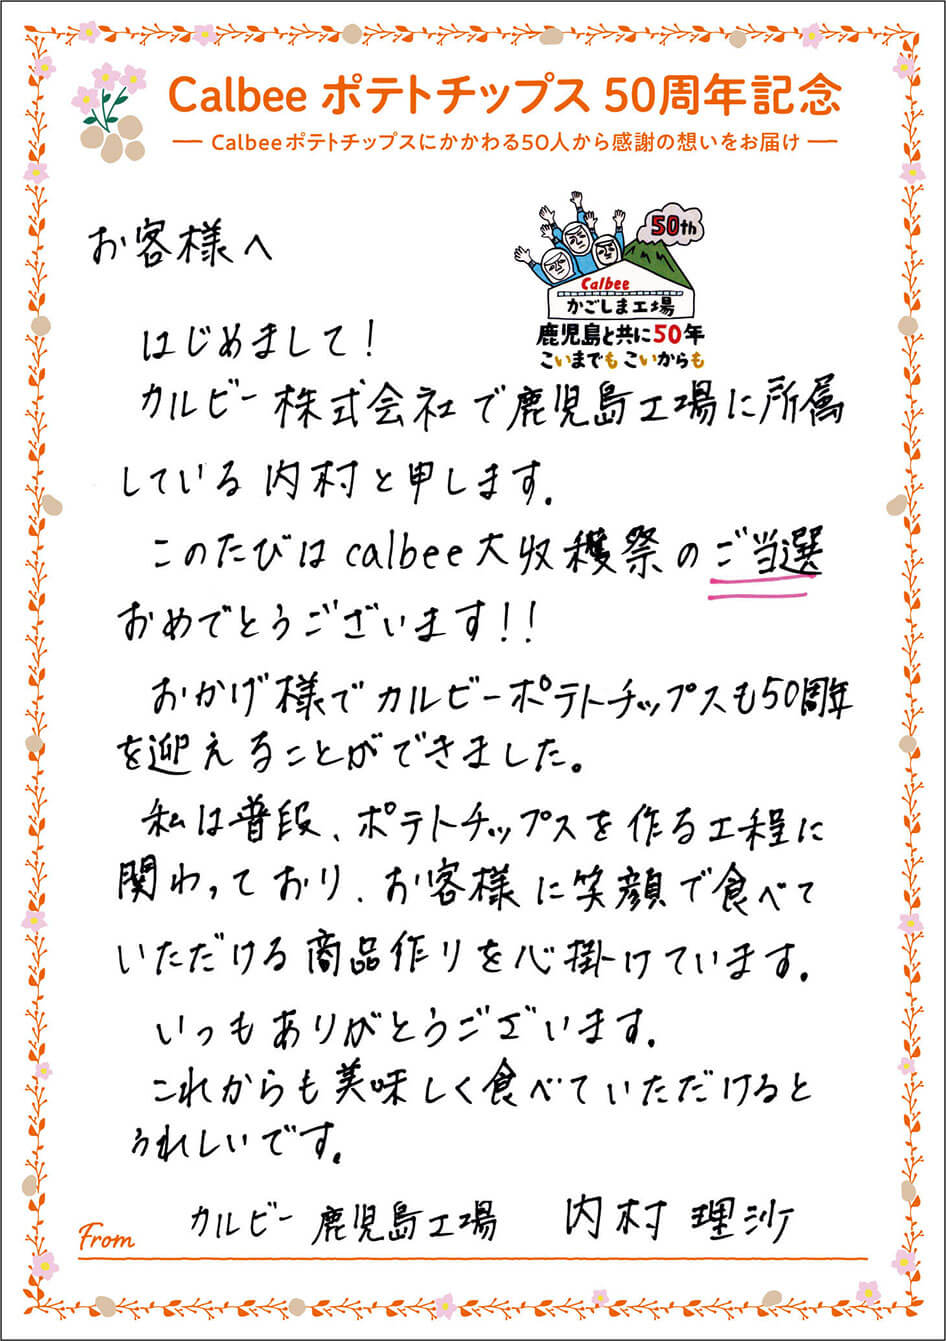 Calbee ポテトチップス 50周年記念
Calbeeポテトチップスにかかわる50人から感謝の想いをお届け
50th
Calbee
かごしま工場
鹿児島と共に50年
こいまでも こいからも
お客様へ
はじめまして!
カルビー株式会社で鹿児島工場に所属
している内村と申します。
このたびはcalbee大収穫祭のご当選
おめでとうございます!!
おかげ様でカルビーポテトチップスも50周年
を迎えることができました。
私は普段、ポテトチップスを作る工程に
関わっており、お客様に笑顔で食べて
いただける商品作りを心掛けています。
いつもありがとうございます。
これからも美味しく食べていただけると
うれしいです。
From カルビー 鹿児島工場 内村 理沙